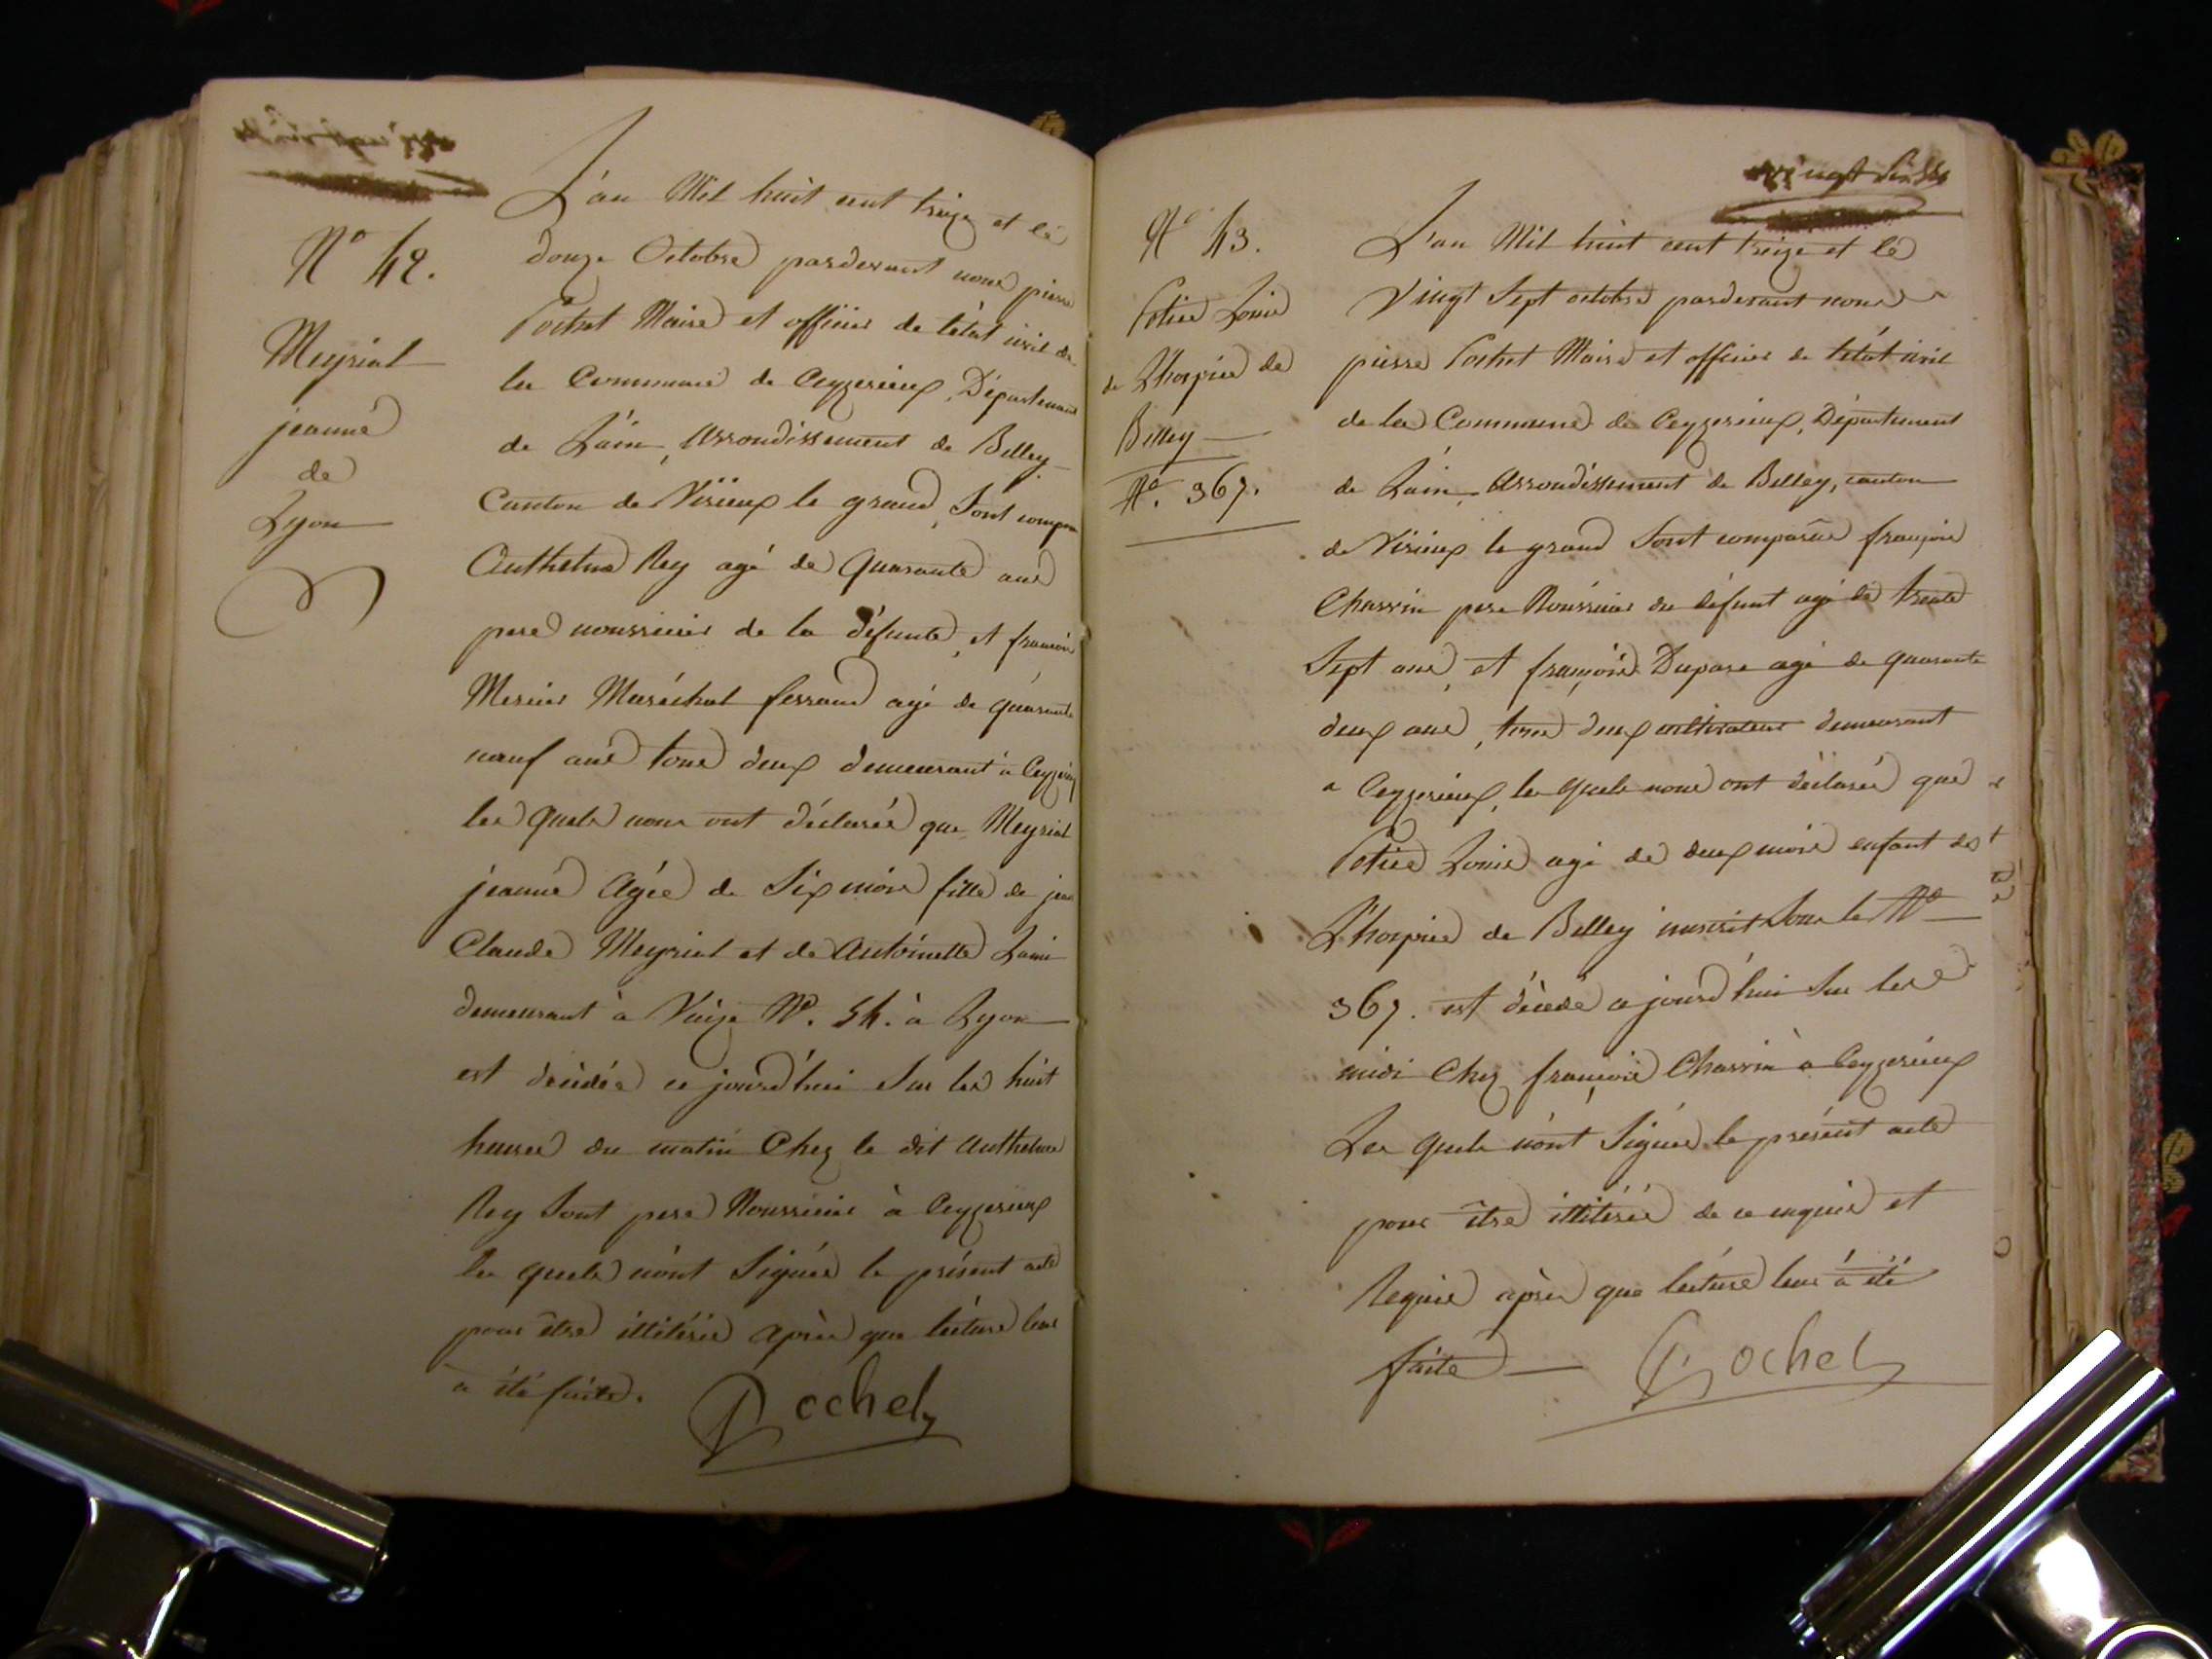 N° 42.
Meyriat
jeanne
de
Lyon
L'an Mil huit cent treize et le
douze Octobre pardevant nous pierre
Pochet Maire et officier de l'état civil de
la Commune de Ceyzerieux, Département
de L'ain, Arrondissement de Belley
Canton de Virieux le grand, Sont comparu
Anthelme Rey agé de Quarante ans
pere nourricier de la défunte, et francois
Mercier Maréchal ferrand agé de quarante
neuf ans tous deux demeurant a Ceyzerieux
les quels nous ont déclarés que Meyriat
jeanne Agée de Six mois fille de jean
Claude Meyriat et de Antoinette Lami
demeurant à Vaize N°. 54. à Lyon
est décédée ce jourd'hui Sur les huit
heures du matin Chez le dit Anthelme
Rey Sont pere Nourricier à Ceyzerieux
les quels n'ont Signés le présent acte
pour être illitérés après que lécture leur
a été faite.
Pochet
vingt
N° 43.
Louis
de L'hospice de
Belley
N°. 367.
L'an Mil huit cent treize et le
Vingt Sept octobre pardevant nous
pierre Pochet Maire et officier de l'état civil
de la Commune de Ceyzerieux, Département
de L'ain, Arrondissement de Belley, canton
de Virieux le grand Sont comparus françois
Charvin pere Nourricier du défunt agé de trente
Sept ans, et françois Dupare agé de quarante
deux ans, tous deux cultivateurs demeurant
a Ceyzerieux, les quels nous ont déclarés que
Louis agé de deux mois enfant de
L'hospice de Belley inscrit Sous le N°
367. est décédé ce jourd'hui Sur les
midi Chez françois Charvin à Ceyzerieux
Les quels n'ont Signés le présent acte
pour être illitérés de ce enquis et
Requis après que lecture leur à été
faite
Pochet